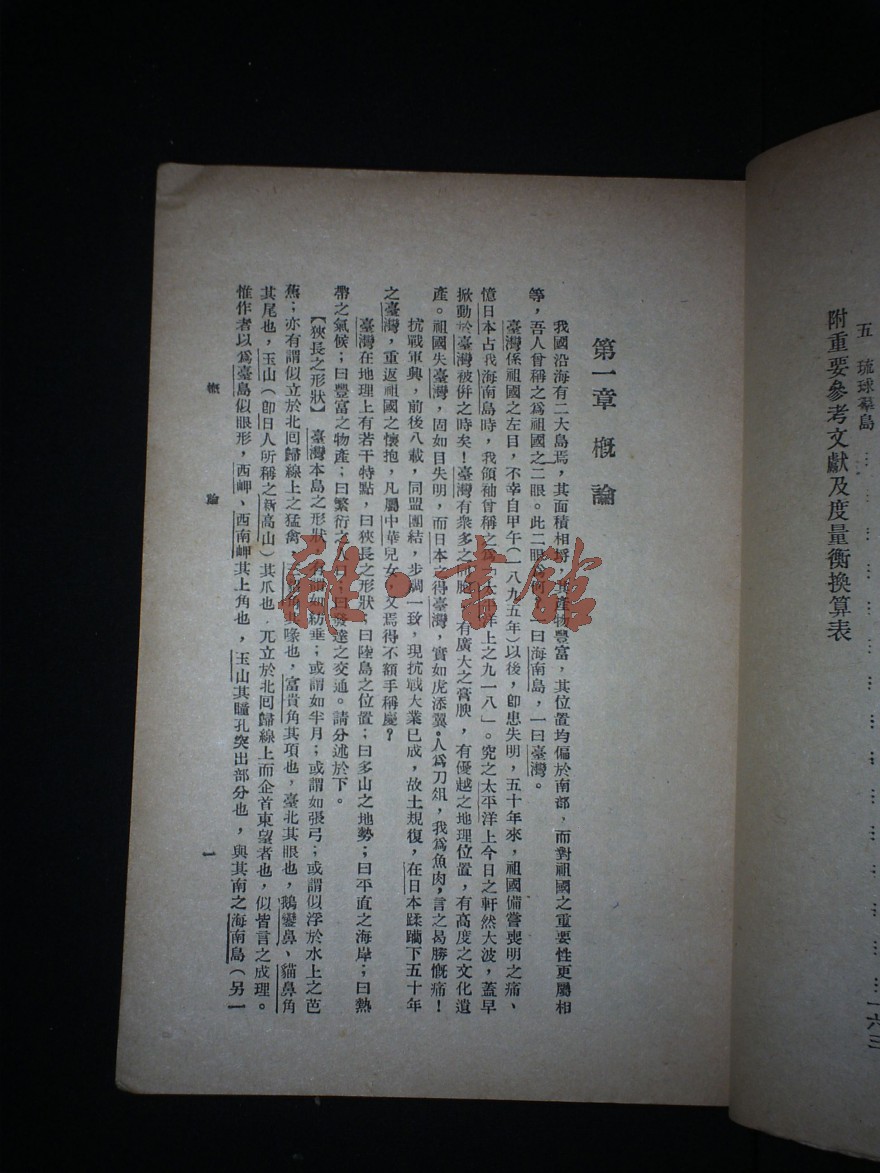 五 琉球羣島 … … … … … … … …
附重要參考文獻及度量衡換算表 … … … … 一六三
第一章 概論
我國沿海有二大島焉，其面積相埒，其產物豐富，其位置均偏於南部，而對祖國之重要性更屬相
等，吾人曾稱之爲祖國之二眼。此二眼爲何？一曰海南島，一曰臺灣。
臺灣係祖國之左目，不幸自甲午（一八九五年）以後，卽患失明，五十年來，祖國備嘗喪明之痛、
憶日本占我海南島時，我領袖曾稱之爲「太平洋上之九一八」。究之太平洋上今日之軒然大波，蓋早
掀動於臺灣被併之時矣！臺灣有衆多之同胞，有廣大之膏腴，有優越之地理位置，有高度之文化遺
產。祖國失臺灣，固如目失明，而日本之得臺灣，實如虎添翼。人爲刀俎，我爲魚肉，言之曷勝慨痛！
抗戰軍興，前後八載，同盟團結，步調一致，現抗戰大業已成，故土規復，在日本蹂躪下五十年
之臺灣，重返祖國之懷抱，凡屬中華兒女，又焉得不額手稱慶？
臺灣在地理上有若干特點，曰狹長之形狀；曰陸島之位置；曰多山之地勢；曰平直之海岸；曰熱
帶之氣候；曰豐富之物產；曰繁衍之人口；曰發達之交通。請分述於下。
【狹長之形狀】臺灣本島之形狀，有謂如紡垂；或謂如半月；或謂如張弓；或謂似浮於水上之芭
蕉；亦有謂似立於北囘歸線上之猛禽，角其喙也，富貴角其項也，臺北其眼也，鵝鑾鼻、貓鼻角
其尾也，玉山（卽日人所稱之新高山）其爪也，兀立於北囘歸線上而企首東望者也，似皆言之成理。
惟作者以爲臺島似眼形，西岬、西南岬其上角也，玉山其瞳孔突出部分也，與其南之海南島（另一
概 論 一
雜·書館